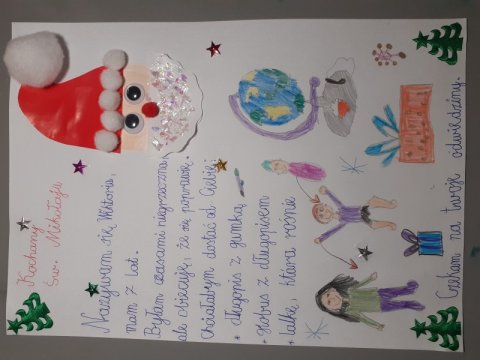 Kochany
Św. Mikołaju
Nazywam się Wiktoria,
mam 7 lat.
Byłam czasami niegrzeczna,
ale obiecuję, że się poprawię.
Chciałabym dostać od Ciebie:
• długopis z gumką,
• globus z długopisem
• lalkę, która rośnie
Czekam na twoje odwiedziny.